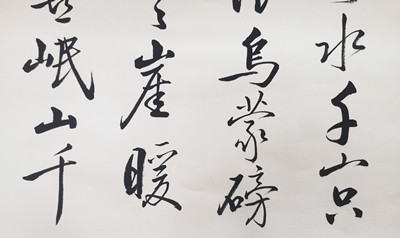 水千山只
烏蒙磅
崖暖
岷山千